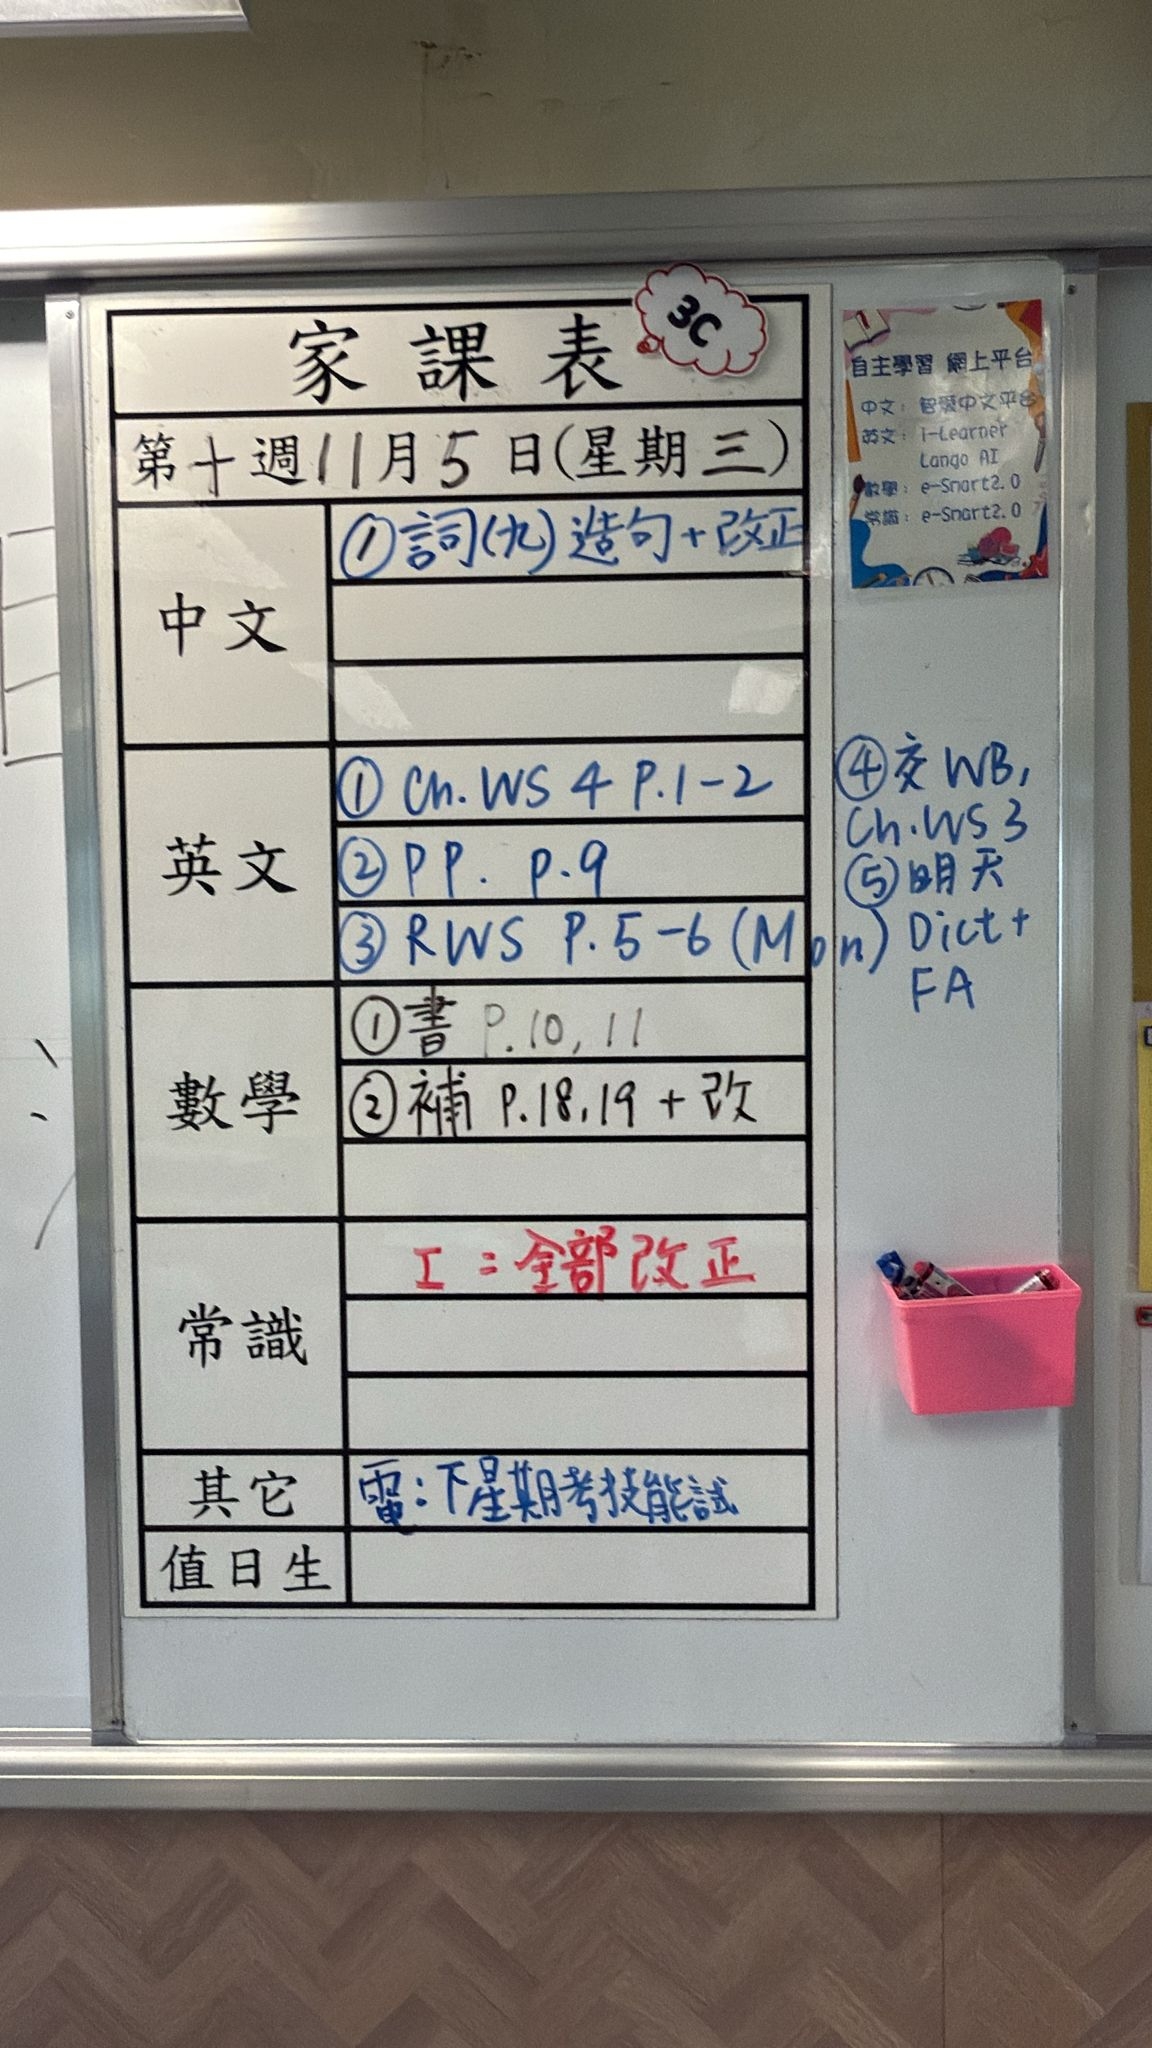 家課表
3C
第十週11月5日(星期三)
中文
①詞(九)造句+改正
英文
①Ch.WS 4 P.1-2
②PP. p.9
③RWS P.5-6 (Mon)
④交WB,
Ch.WS 3
⑤明天
Dict+
FA
數學
①書 P.10, 11
②補 P.18,19 + 改
常識
工：全部改正
其它
電:下星期考技能試
值日生
自主學習 網上平台
中文：智愛中文平台
英文：i-Learner
Lango AI
數學：e-Smart2.0
常識：e-Smart2.0